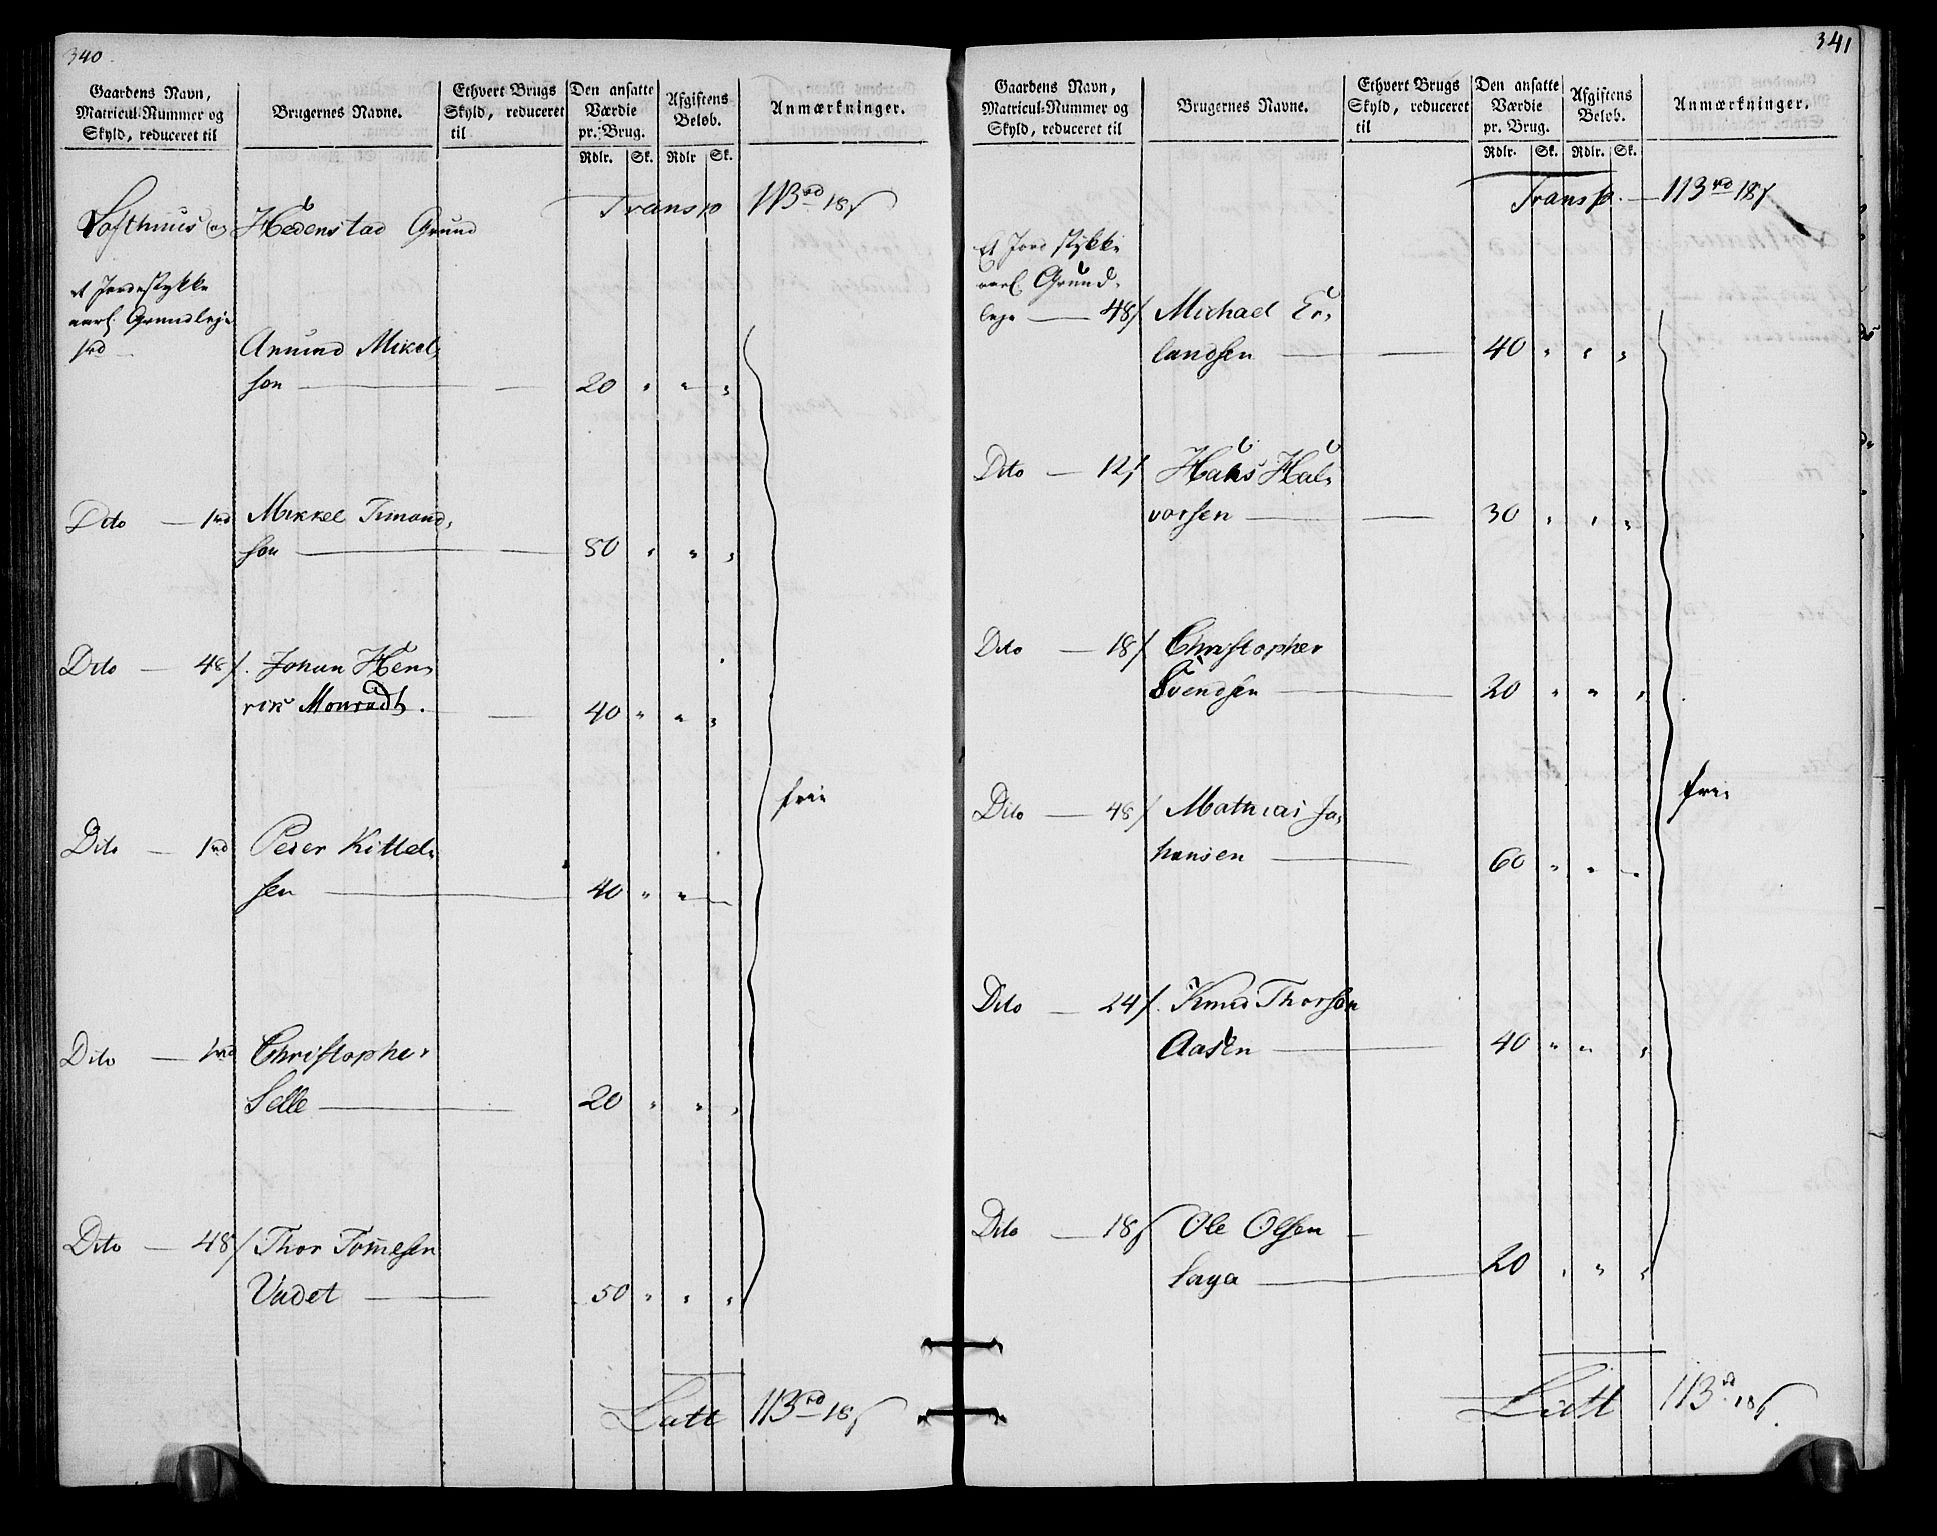 340.
Gaardens Navn,
Matricul-Nummer og
Skyld, reduceret til
Brugernes Navne.
Ethvert Brugs
Skyld, reduceret
til
Den ansatte
Værdie
pr. Brug.
Afgiftens
Beløb.
Anmærkninger.
Rdlr. Sk. Rdlr Sk.
Transp 113 rd 18 s
Lofthuus Hedenstad Grund
et Jordestykke
aarl. Grundleje
1 rd Anund Mikel-
sen 20 " " "
Dito — 1 rd Mikkel Timand-
son 80 " " "
Dito — 48 s. Johan Hen-
rik Monradt. 40 " " "
frie
Dito — 1 rd Peder Kittel-
sen 40 " "
Dito — 1 rd Christopher
Selle 20 " " "
Dito — 48 s Thor Tomesen
Vadet 50 " " "
Latt 113 rd 18 s
341
Gaardens Navn,
Matricul-Nummer og
Skyld, reduceret til
Brugernes Navne.
Ethvert Brugs
Skyld, reduceret
til
Den ansatte
Værdie
pr. Brug.
Afgiftens
Beløb.
Anmærkninger.
Rdlr. Sk. Rdlr. Sk.
Transp. — 113 rd 18 s
et Jord stykke
aarl Grund-
leje — 48 s Michael Er-
landsen 40 " " "
Dito — 12 s Hans Hal-
vorsen 30 " " "
Dito — 18 s Christopher
Svendsen 20 " " "
frie
Dito — 48 s Mathias Jo-
hansen 60 " "
Dito — 24 s. Knud Thorson
Aasen 40 " " "
Dito — 18 s Ole Olsen
Saga 20 " " "
Latt 113 rd 18 s.